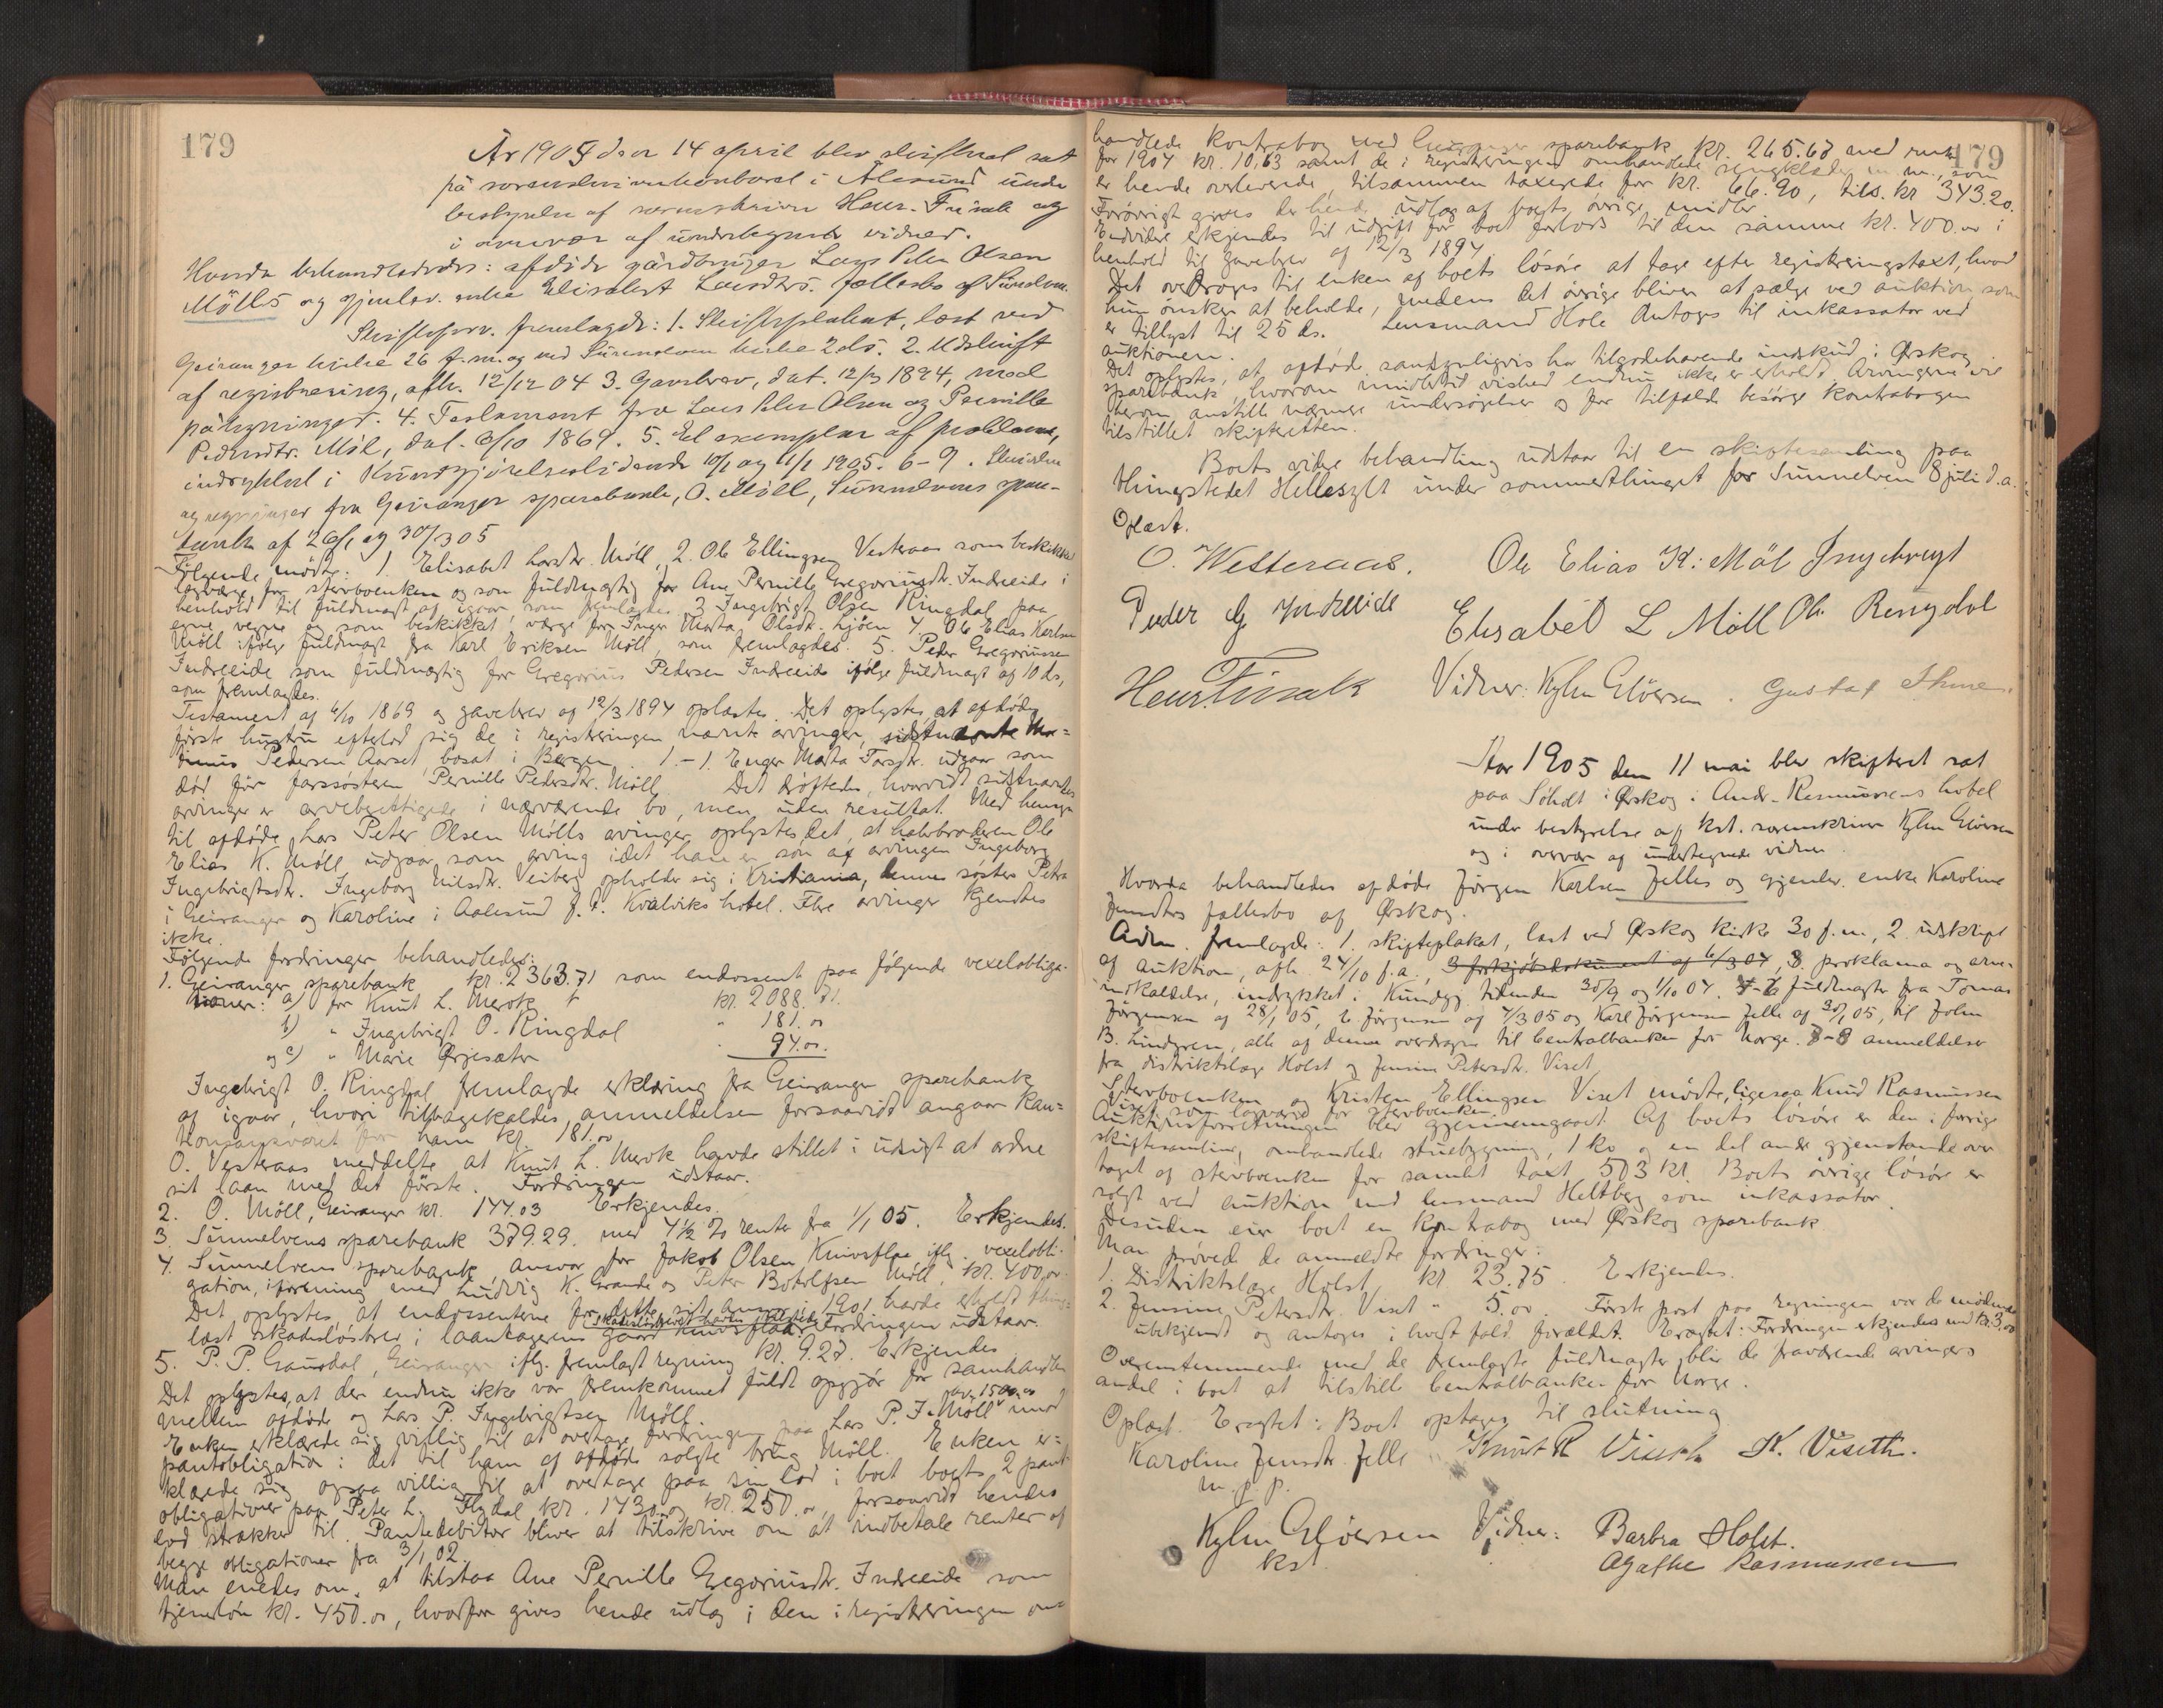 179
År 1905 den 14 april blev skifteret sat
på sorenskriverkontoret i Ålesund under
bestyrelse af sorenskriver Henr. Finsak og
i overvær af undertegnede vidner.
Hvorda behandledes: afdøde gårdbruger Lars Peter Olsen
Mölls og gjenlev. enke Elisabet Larsdtrs. fællesbo af Sunelven.
Skifteforv. fremlagde: 1. Skifteplakat, læst ved
Geiranger kirke 26 f.m. og ved Sunnelven kirke 2 ds. 2. Udskrift
af registrering, afh. 12/12 04 3. Gavebrev, dat. 12/3 1894, med
påtegninger. 4. Testament fra Lars Peter Olsen og Pernille
Pedersdtr. Möl, dat. 6/10 1869. 5. Et exemplar af proklama,
indrykket i Kundgjørelsestidende 10/1 og 11/1 1905. 6-9. Skrivelser
og regninger fra Geiranger sparebank, O. Möll, Sunnelvens spare-
bank af 26/1 og 30/3 05
Følgende mødte: 1. Elisabet Larsdtr. Möll, 2. Ole Ellingsen Vesteraas som beskikket
lagværge for stervboenken og som fuldmægtig for Ane Pernille Gregoriusdtr. Indreeide i
henhold til fuldmagt af igaar, som fremlagdes 3 Ingebrigt Olsen Ringdal paa
egne vegne og som beskikket værge for Inger Marta Olsdtr. Ljøen 4. Ole Elias Karlsen
Möll ifølge fuldmagt fra Karl Eriksen Möll, som fremlagdes. 5. Peder Gregoriussen
Indreeide som fuldmægtig for Gregorius Pedersen Indreeide ifølge fuldmagt af 10 ds,
som fremlagdes.
Testament af 6/10 1869 og gavebrev af 12/3 1894 oplæstes. Det oplystes, at afdødes
første hustru efterlod sig de i registreringen nævnte arvinger, sidstnævnte Mar-
tinus Pedersen Aarset bosat i Bergen. 1.-1. Enger Marta Larsdtr. udgaar som
død før farssøsteren Pernille Pedersdtr. Möll. Det drøftedes, hvorvidt sidstnævntes
arvinger er arveberettigede i nærværende bo, men uden resultat. Med hensyn
til afdøde Lars Peter Olsen Mölls arvinger oplystes det, at halvbroderen Ole
Elias K. Möll udgaar som arving idet han er søn af arvingen Ingeborg
Ingebrigtsdtr. Ingeborg Nilsdtr. Veiberg opholder sig i Kristiania, hennes søster Petra
i Geiranger og Karoline i Aalesund f. t. Kvalviks hotel. Flere arvinger kjendtes
ikke.
Følgende fordringer behandledes:
1. Geiranger sparebank kr. 2363.71 som endossent paa følgende vexelobliga-
tioner: a) for Knut L. Merok kr. 2088.71.
b) " Ingebrigt O. Ringdal " 181.00
og c) " Marie Ørjesæter " 94.00.
Ingebrigt O. Ringdal fremlagde erklæring fra Geiranger sparebank
af igaar, hvori tilbagekaldes anmeldelsen forsaavidt angaar kau-
tionsansvaret for ham kr. 181.00
O. Vesteraas meddelte at Knut L. Merok havde stillet i udsigt at ordne
sit laan med det første. Fordringen udstaar.
2. O. Möll, Geiranger kr. 144.03 Erkjendes.
3. Sunnelvens sparebank 379.29. med 4 1/2 % renter fra 1/1 05. Erkjendes.
4. Sunnelvens sparebank ansvar for Jakob Olsen Knivsflaa iflg. vexelobli-
gation, i forening med Ludvig K. Grande og Peter Botolfsen Möll, kr. 400,00.
Det oplystes, at endossenterne for dette sit ansvar i 1901 havde erholdt thing-
læst skadesløsbrev i laantagerens gaard Knivsflaa. Fordringen udstaar.
5. P. P. Gausdal, Geiranger iflg. fremlagt regning kr. 9.27. Erkjendes
Det oplystes, at der endnu ikke var fremkommet fuldt opgjør for samhandlen
mellem afdøde og Lars P. Ingebrigtsen Möll.
Enken erklærede sig villig til at overtage fordringen paa Lars P. I. Möll med
pantobligation i det til ham af afdøde solgte brug Möll. Enken er-
klærede sig ogsaa villig til at overtage paa sin lod i boet boets 2 pant-
obligationer paa Peter L. Flydal kr. 1430.00 og kr. 250.00, forsaavidt hendes
lod strækker til. Pantedebitor bliver at tilskrive om at indbetale renter af
begge obligationer fra 3/1 02.
Man enedes om, at tilstaa Ane Pernille Gregoriusdtr. Indreeide som
tjenerløn kr. 450.00, hvorfor gives hende udlæg i den i registreringen om-
179
handlede kontrabog med Geiranger sparebank kr. 265.67 med renter
for 1904 kr. 10,63 samt de i registreringen omhandlede sengklæder m. m., som
er hende overleverede, tilsammen taxerede for kr. 66.90, tils. kr 343.20.
Forøvrigt gives der hende udlæg af boets øvrige midler.
Endvidere erkjendes til udgift for boet forlods til den samme kr. 400.00 i
henhold til gavebrev af 12/3 1894
Det overdroges til enken af boets løsøre at tage efter registreringstaxt, hvad
hun ønsker at beholde, medens det øvrige bliver at sælge ved auktion, som
er tillyst til 25 ds. Lensmand Hole antoges til inkassator ved
auktionen.
Det oplystes, at afdøde sandsynligvis har tilgodehavende indskud i Ørskog
sparebank, hvorom imidlertid vished endnu ikke er erholdt. Arvingerne vil
herom anstille nærmere undersøgelser og for tilfælde besørge kontrabogen
tilstillet skifteretten.
Boets videre behandling udstaar til en skiftesamling paa
thingstedet Hellesylt under sommerthinget for Sunnelven 8 juli d.a.
Oplæst.
O. Westeraas. Ole Elias K. Möl Ingebrigt
Peder G Indreeide Elisabet L Möll Ol. Ringdal
Henr. Finsak Vidner: Kylm Glöersen. Gustav Thune.
Aar 1905 den 11 mai blev skifteret sat
paa Söholt i Ørskog i Andr. Rasmussens hotel
under bestyrelse af kst. sorenskriver Kylm Glöersen
og i overvær af undertegnede vidner.
Hvorda behandledes afdøde Jørgen Karlsen Jelles og gjenlev. enke Karoline
Jensdtrs fællesbo af Ørskog.
Adm. fremlagde: 1. skifteplakat, læst ved Ørskog kirke 30 f.m., 2. udskrift
af auktion, afh. 24/10 f.a., 3 forkjøbsdokument af 6/3 04, 3. proklama og arve-
indkaldelse, indrykket i Kundgj. tidenden 30/9 og 1/10 04. 4-6 fuldmagter fra Tomas
Jørgensen af 28/1 05, E Jørgensen af 7/3 05 og Karl Jørgensen Jelle af 30/1 05, til John
B. Lindgren, alle af denne overdragne til Centralbanken for Norge. 7-8 anmeldelser
fra distriktslæge Holst og Jensine Petersdtr. Viset
Stervboenken og Kristen Ellingsen Viset mødte, ligesaa Knud Rasmussen
Viset som lagværge for stervboenken.
Auktionsforretningen blev gjennemgaaet. Af boets løsøre er den i forrige
skiftesamling omhandlede stuebygning, 1 ko og en del andre gjenstande over-
taget af stervboenken for samlet taxt 573 kr. Boets øvrige løsøre er
solgt ved auktion med lensmand Heltberg som inkassator.
Desuden eier boet en kontrabog med Ørskog sparebank
Man prøvede de anmeldte fordringer:
1. Distriktslæge Holst kr 23.75. Erkjendes.
2. Jensine Petersdtr. Viset " 5.00. Første post paa regningen var de mødende
ubekjendt og antoges i hvert fald forældet. Eragtet: Fordringen erkjendes med kr. 3.00
Overensstemmende med de fremlagte fuldmagter blir de fraværende arvingers
andel i boet at tilstille Centralbanken for Norge.
Oplæst. Eragtet: Boet optages til slutning
Karoline Jensdtr. Jelle Knut R Viseth K. Viseth.
m. p. p.
Kylm Glöersen Vidner: Barbra Holst.
kst. Agathe Rasmussen